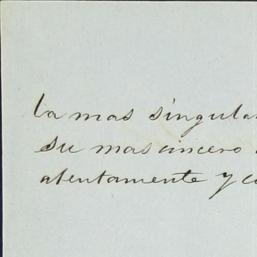 la mas singular
su mas sincero
atentamente y co